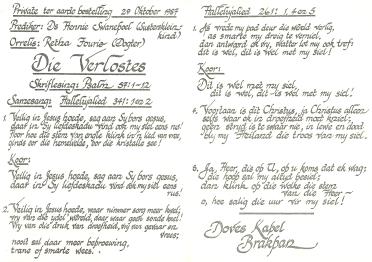 Private ter aarde bestelling 29 Oktober 1987
Prediker: Ds Hennie Swanepoel (Susterskleinkind)
Orrelis: Retha Fourie (Dogter)
Die Verlostes
Skriflesing: Psalm
Samesang: Hallelujalied 341: 1 en 2
1. Veilig in Jesus hoede, veilig aan Sy bors gesus,
daar in Sy liefdeskadu vind ook my siel eens rus!
Hoor hoe die stem van engle klink in 'n lied van vreê,
ginds oor die hemelvelde, oor die kristalle see!
Koor:
Veilig in Jesus hoede, veilig aan Sy bors gesus,
daar in Sy liefdeskadu vind ook my siel eens
rus!
2. Veilig in Jesus hoede, waar nimmer sorg meer kwel;
vry van die druk van droefheid, vry van gevaar en
vrees;
nooit sal daar meer beproewing,
trane of smarte wees. .
Hallelujalied 261: 1, 4 en 5
1. As vrede my pad deur die wêreld verlig,
as smarte my dreig te verniel,
dan antwoord ek vry, watter lot my ook tref:
dit is wel, dit is wel met my siel!
Koor:
Dit is wel met my siel,
dit is wel, dit is wel met my siel!
4. Voortaan is dit Christus, ja Christus alleen
selfs waar ek in droefheid moet kniel;
geen stryd is te swaar nie, in lewe en dood
bly my Heiland die troos van my siel.
5. Ja, Heer, dis op U, op U koms dat ek wag;
die hoop sal my altyd besiel;
dan klink op die wolke die stem
van die Heer —
o, hoe salig die uur vir my siel!
Doves Kapel
Brakpan